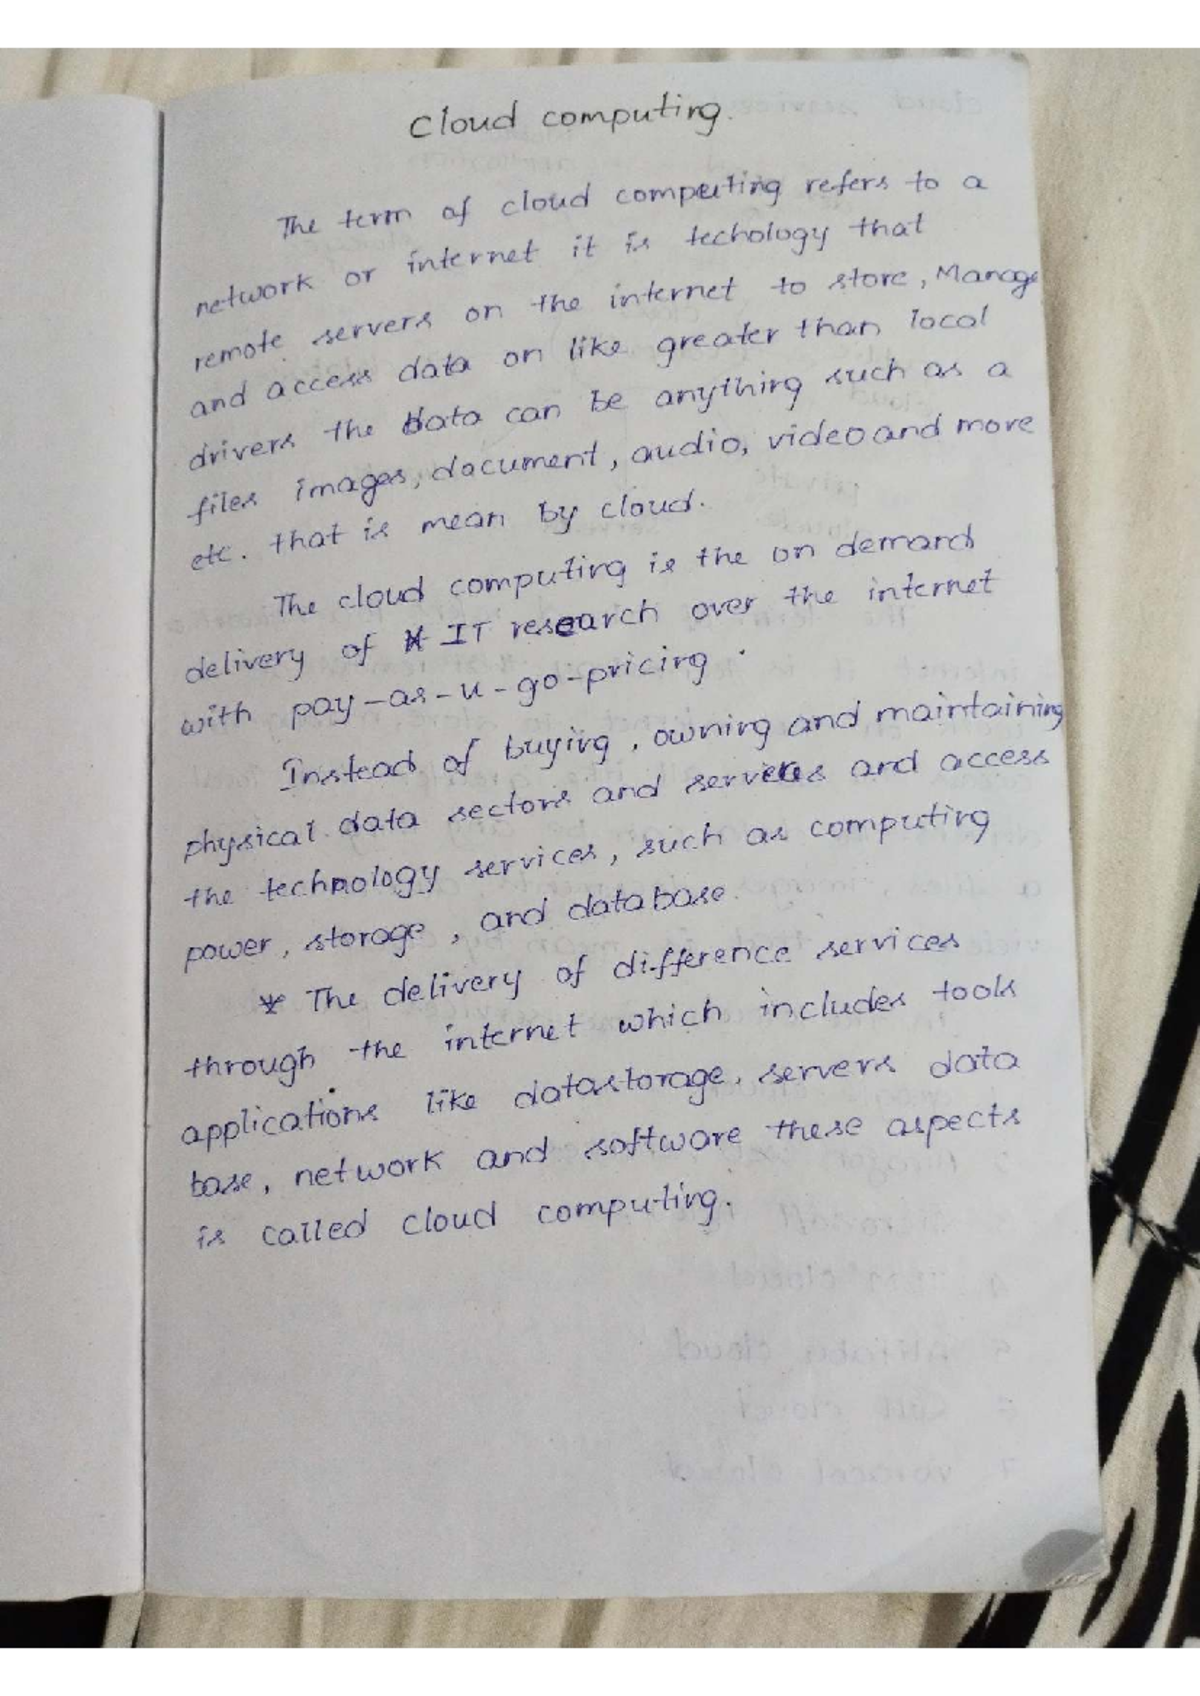 Cloud computing.
The term of cloud computing refers to a
network or internet it is techology that
remote servers on the internet to store, Manage
and access data on like greater than local
drivers the data can be anything such as a
files images, document, audio, video and more
etc. that is mean by cloud.
The cloud computing is the on demand
delivery of IT research over the internet
with pay-as-u-go-pricing.
Instead of buying, owning and maintaining
physical data sectors and servers and access
the technology services, such as computing
power, storage, and database.
* The delivery of difference services
through the internet which includes tools
applications like datastorage, servers data
base, network and software these aspects
is called cloud computing.